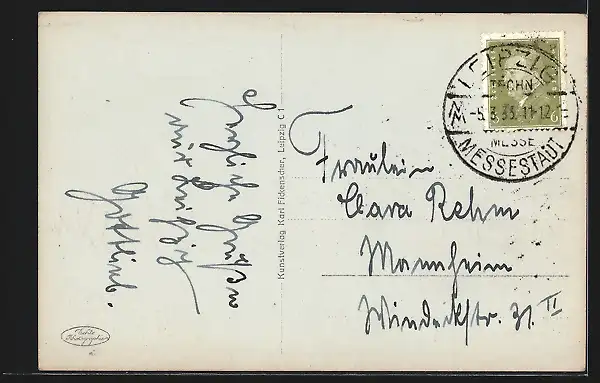 Herzliche Grüße
aus Leipzig
Gottlieb.
Kunstverlag Karl Fickenscher, Leipzig C 1
LEIPZIG
TECHN.
-5.3.33.11-12
MESSE
MESSESTADT
Fräulein
Clara Rehm
Mannheim
Windeckstr. 31. II
Echte
Photographie